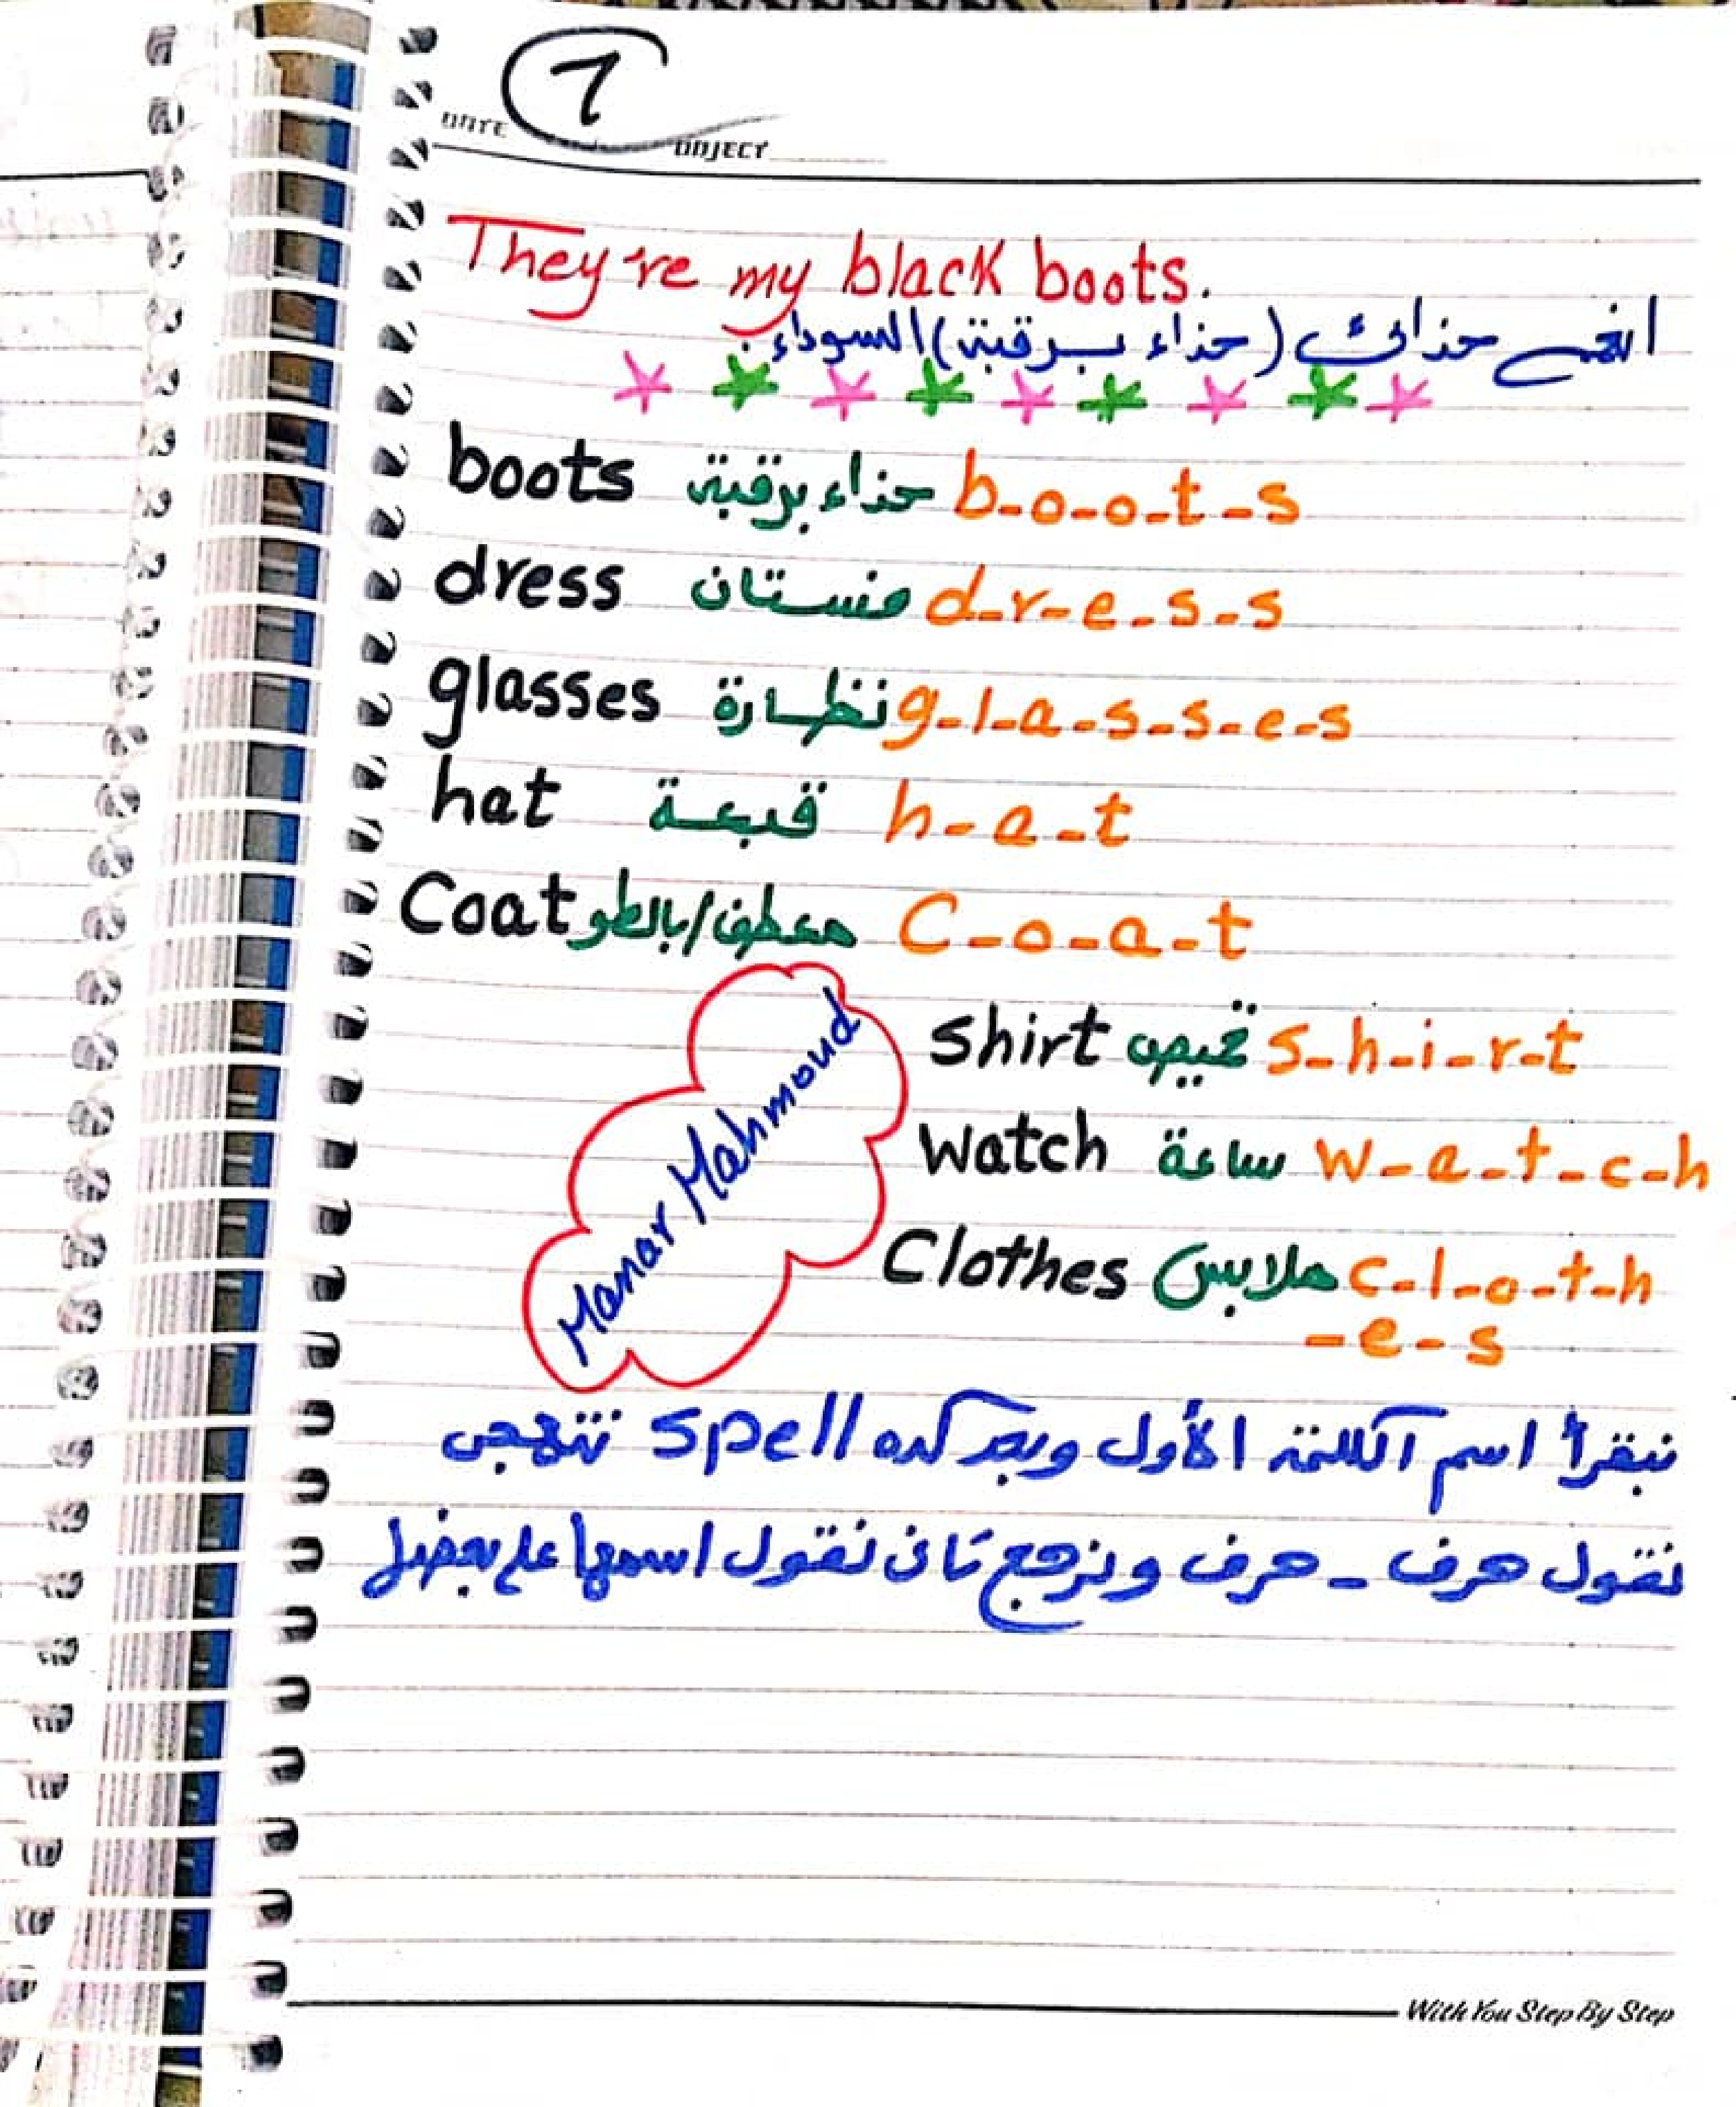 7
DATE
OBJECT
They're my black boots.
انهى حذائى (حذاء برقبة) السوداء.
boots حذاء برقبة b-o-o-t-s
dress فستان d-r-e-s-s
glasses نظارة g-l-a-s-s-e-s
hat قبعة h-a-t
Coat معطف/بالطو C-o-a-t
Shirt قميص s-h-i-r-t
Watch ساعة w-a-t-c-h
Clothes ملابس c-l-o-t-h
-e-s
Manar Mahmoud
نبقرأ اسم الكلمة الأول وبعد كده spell نتهجى
نقول حرف - حرف ونرجع تانى نقول اسمها على بعضها
With You Step By Step